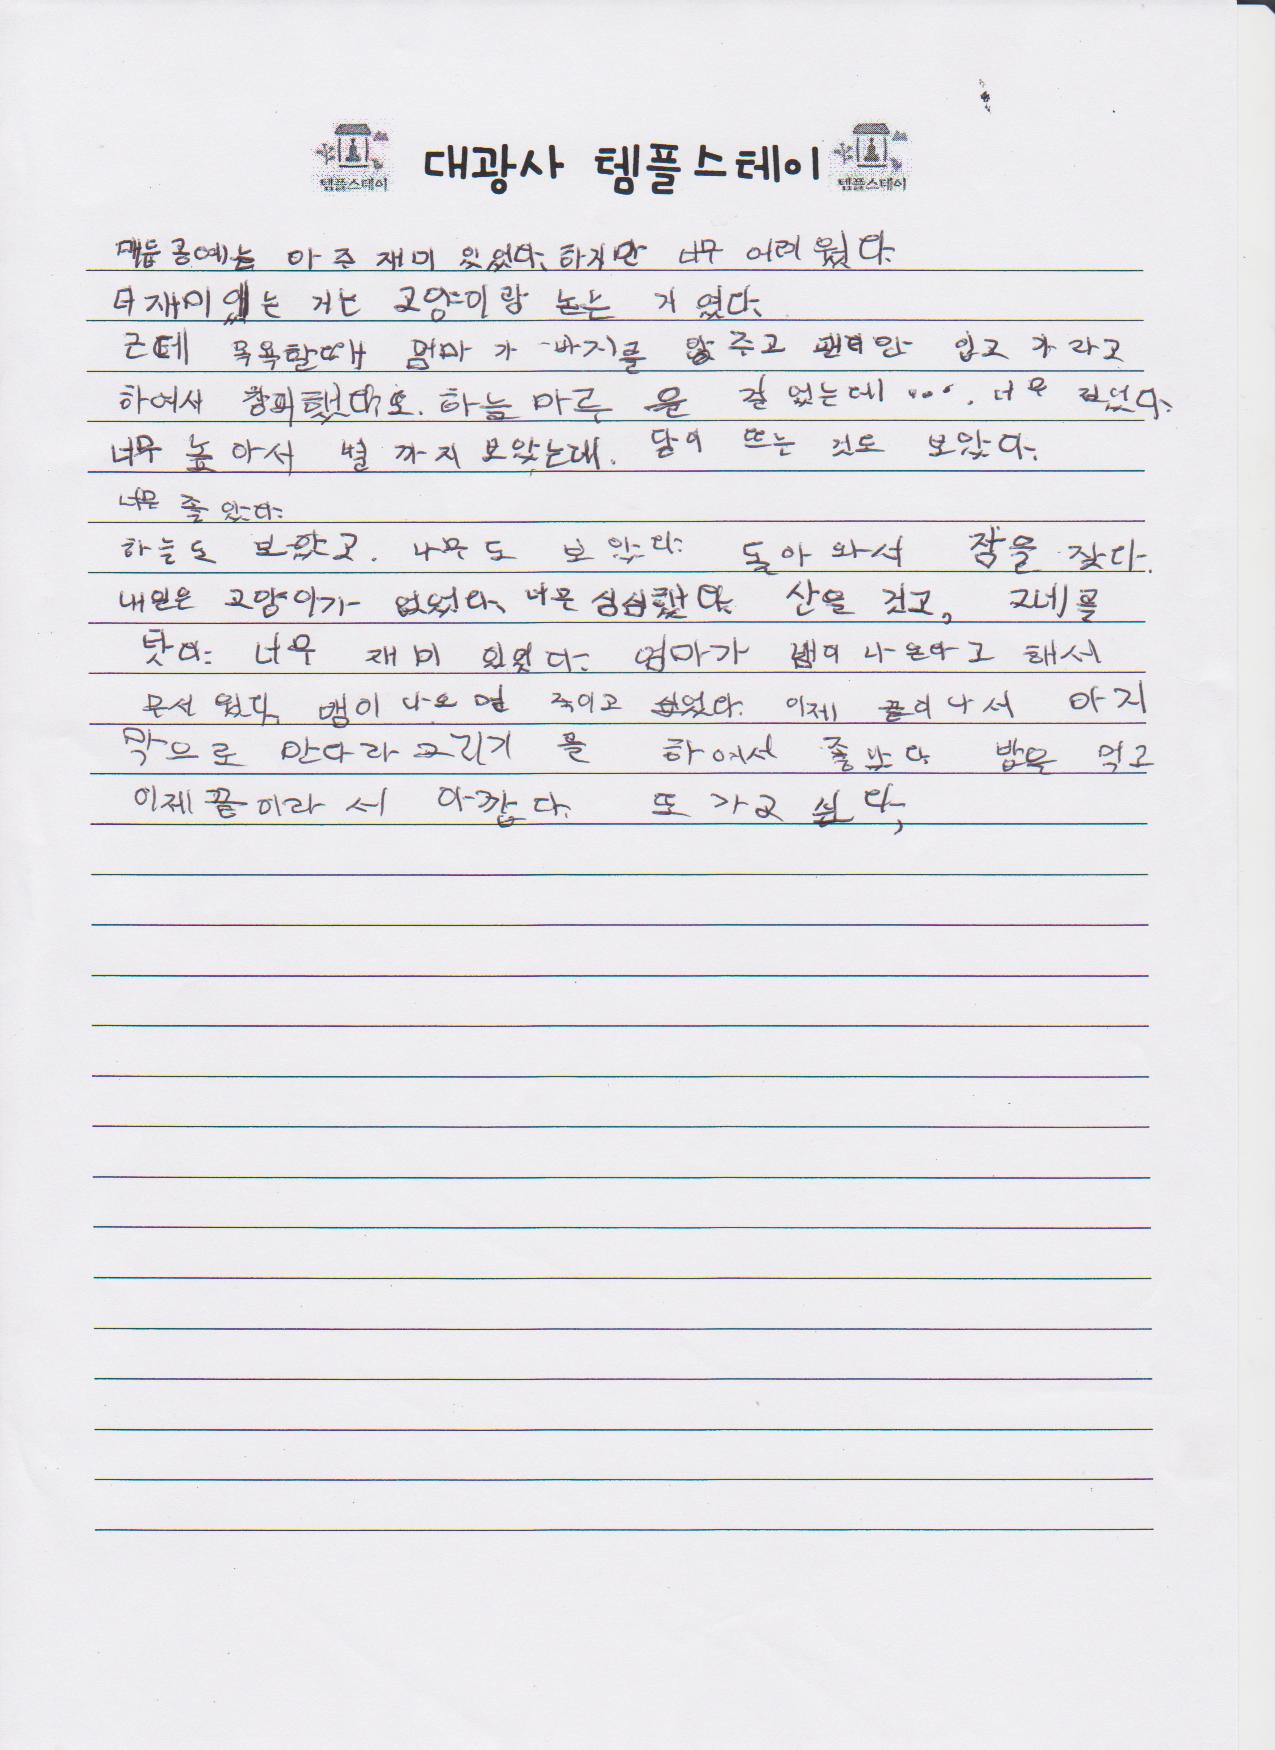 템플스테이 대광사 템플스테이 템플스테이
매듭공예는 아주 재미 있었다. 하지만 너무 어려웠다.
더 재미있는 거는 고양이랑 노는 거 였다.
근데 목욕할때 엄마가 바지를 안주고 팬티만 입고 가라고
하여서 창피했다. 하늘마루 을 걸었는데 .... 너무 길었다.
너무 높아서 별 까지 보았는대. 달이 뜨는 것도 보았다.
너무 좋았다.
하늘도 보았고. 나무도 보았다. 돌아와서 잠을 잤다.
내일은 고양이가 없었다. 너무 심심했다. 산을 걷고, 그네를
탓다. 너무 재미 있었다. 엄마가 뱀이 나온다고 해서
무서웠다. 뱀이 나오면 죽이고 싶었다. 이제 끝이나서 마지
막으로 만다라 그리기 를 하여서 좋았다. 밥을 먹고
이제 끝이라서 아깝다. 또 가고 싶다,